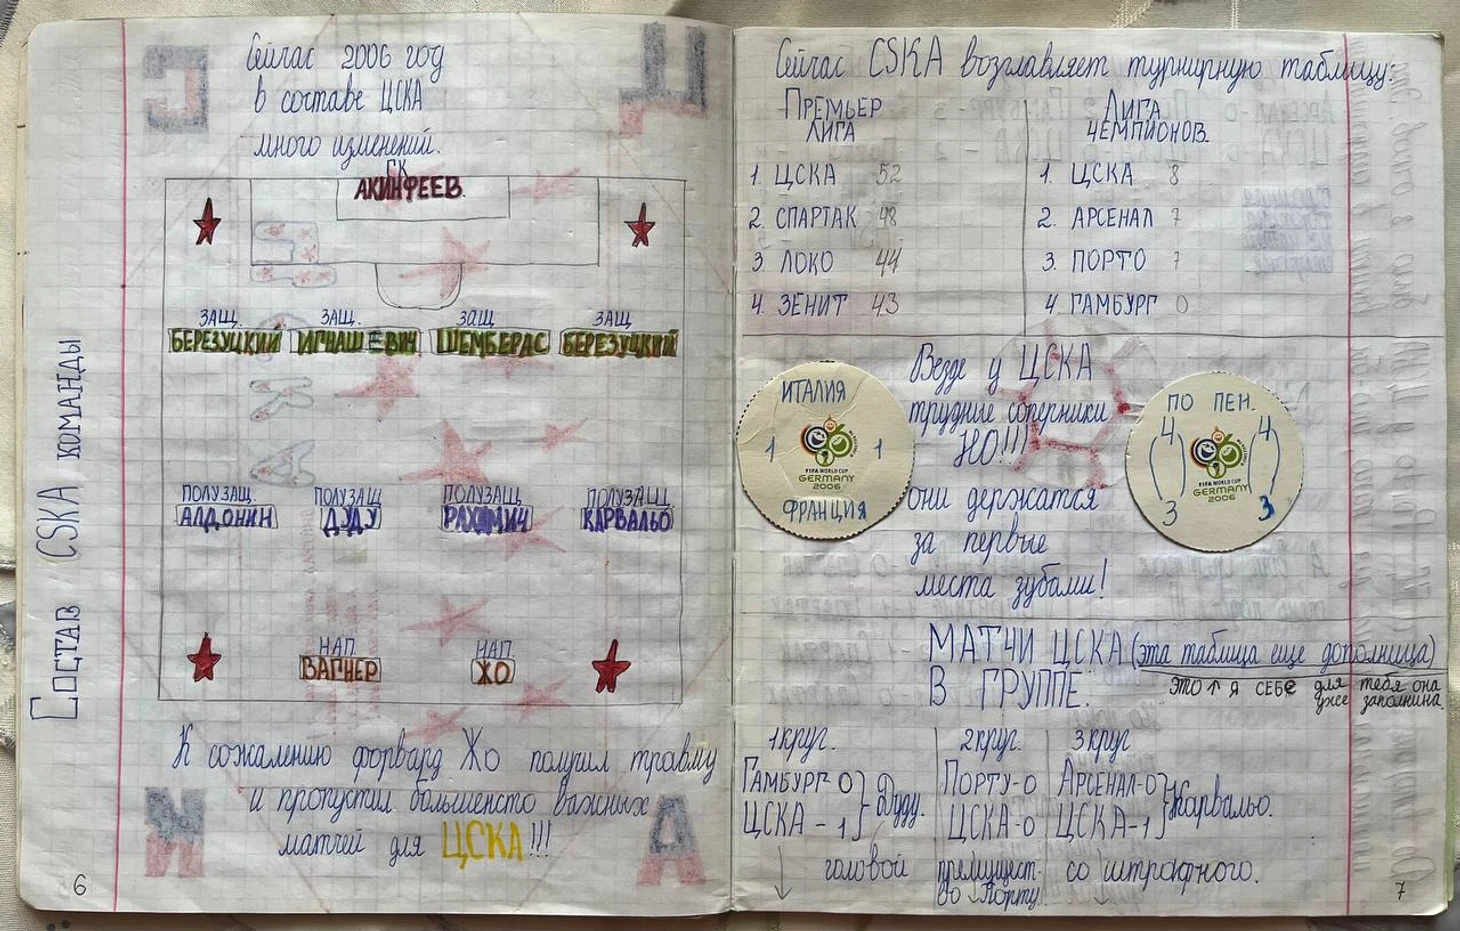 Сейчас 2006 год
в составе ЦСКА
много изменений.
ГК
АКИНФЕЕВ.
ЗАЩ. ЗАЩ. ЗАЩ ЗАЩ
БЕРЕЗУЦКИЙ ИГНАШЕВИЧ ШЕМБЕРАС БЕРЕЗУЦКИЙ
ПОЛУЗАЩ. ПОЛУЗАЩ ПОЛУЗАЩ ПОЛУЗАЩ.
АЛДОНИН ДУДУ РАХИМИЧ КАРВАЛЬО
НАП. НАП.
ВАГНЕР ЖО
Состав CSKA команды
К сожалению форвард Жо получил травму
и пропустил большенсто важных
матчей для ЦСКА!!!
6
Сейчас CSKA возглавляет турнирную таблицу:
ПРЕМЬЕР
ЛИГА
1. ЦСКА 52
2. СПАРТАК 48
3 ЛОКО 44
4. ЗЕНИТ 43
ЛИГА
ЧЕМПИОНОВ.
1. ЦСКА 8
2. АРСЕНАЛ 7
3. ПОРТО 7
4 ГАМБУРГ 0
ИТАЛИЯ
1 1
FIFA WORLD CUP
GERMANY
2006
ФРАНЦИЯ
Везде у ЦСКА
трудные соперники
НО!!!
они держатся
за первые
места зубами!
ПО ПЕН.
4 4
FIFA WORLD CUP
GERMANY
2006
3 3
МАТЧИ ЦСКА (эта таблица еще дополница)
В ГРУППЕ:
ЭТО ↑ Я СЕБЕ для тебя она
уже заполнина.
1 круг. 2 круг. 3 круг
ГАМБУРГ-0 } Дуду. ПОРТУ-0 АРСЕНАЛ-0 } Карвальо.
ЦСКА - 1 ЦСКА-0 ЦСКА-1
↓ головой премущест- со штрафного.
во ↓ Порту ↓
7